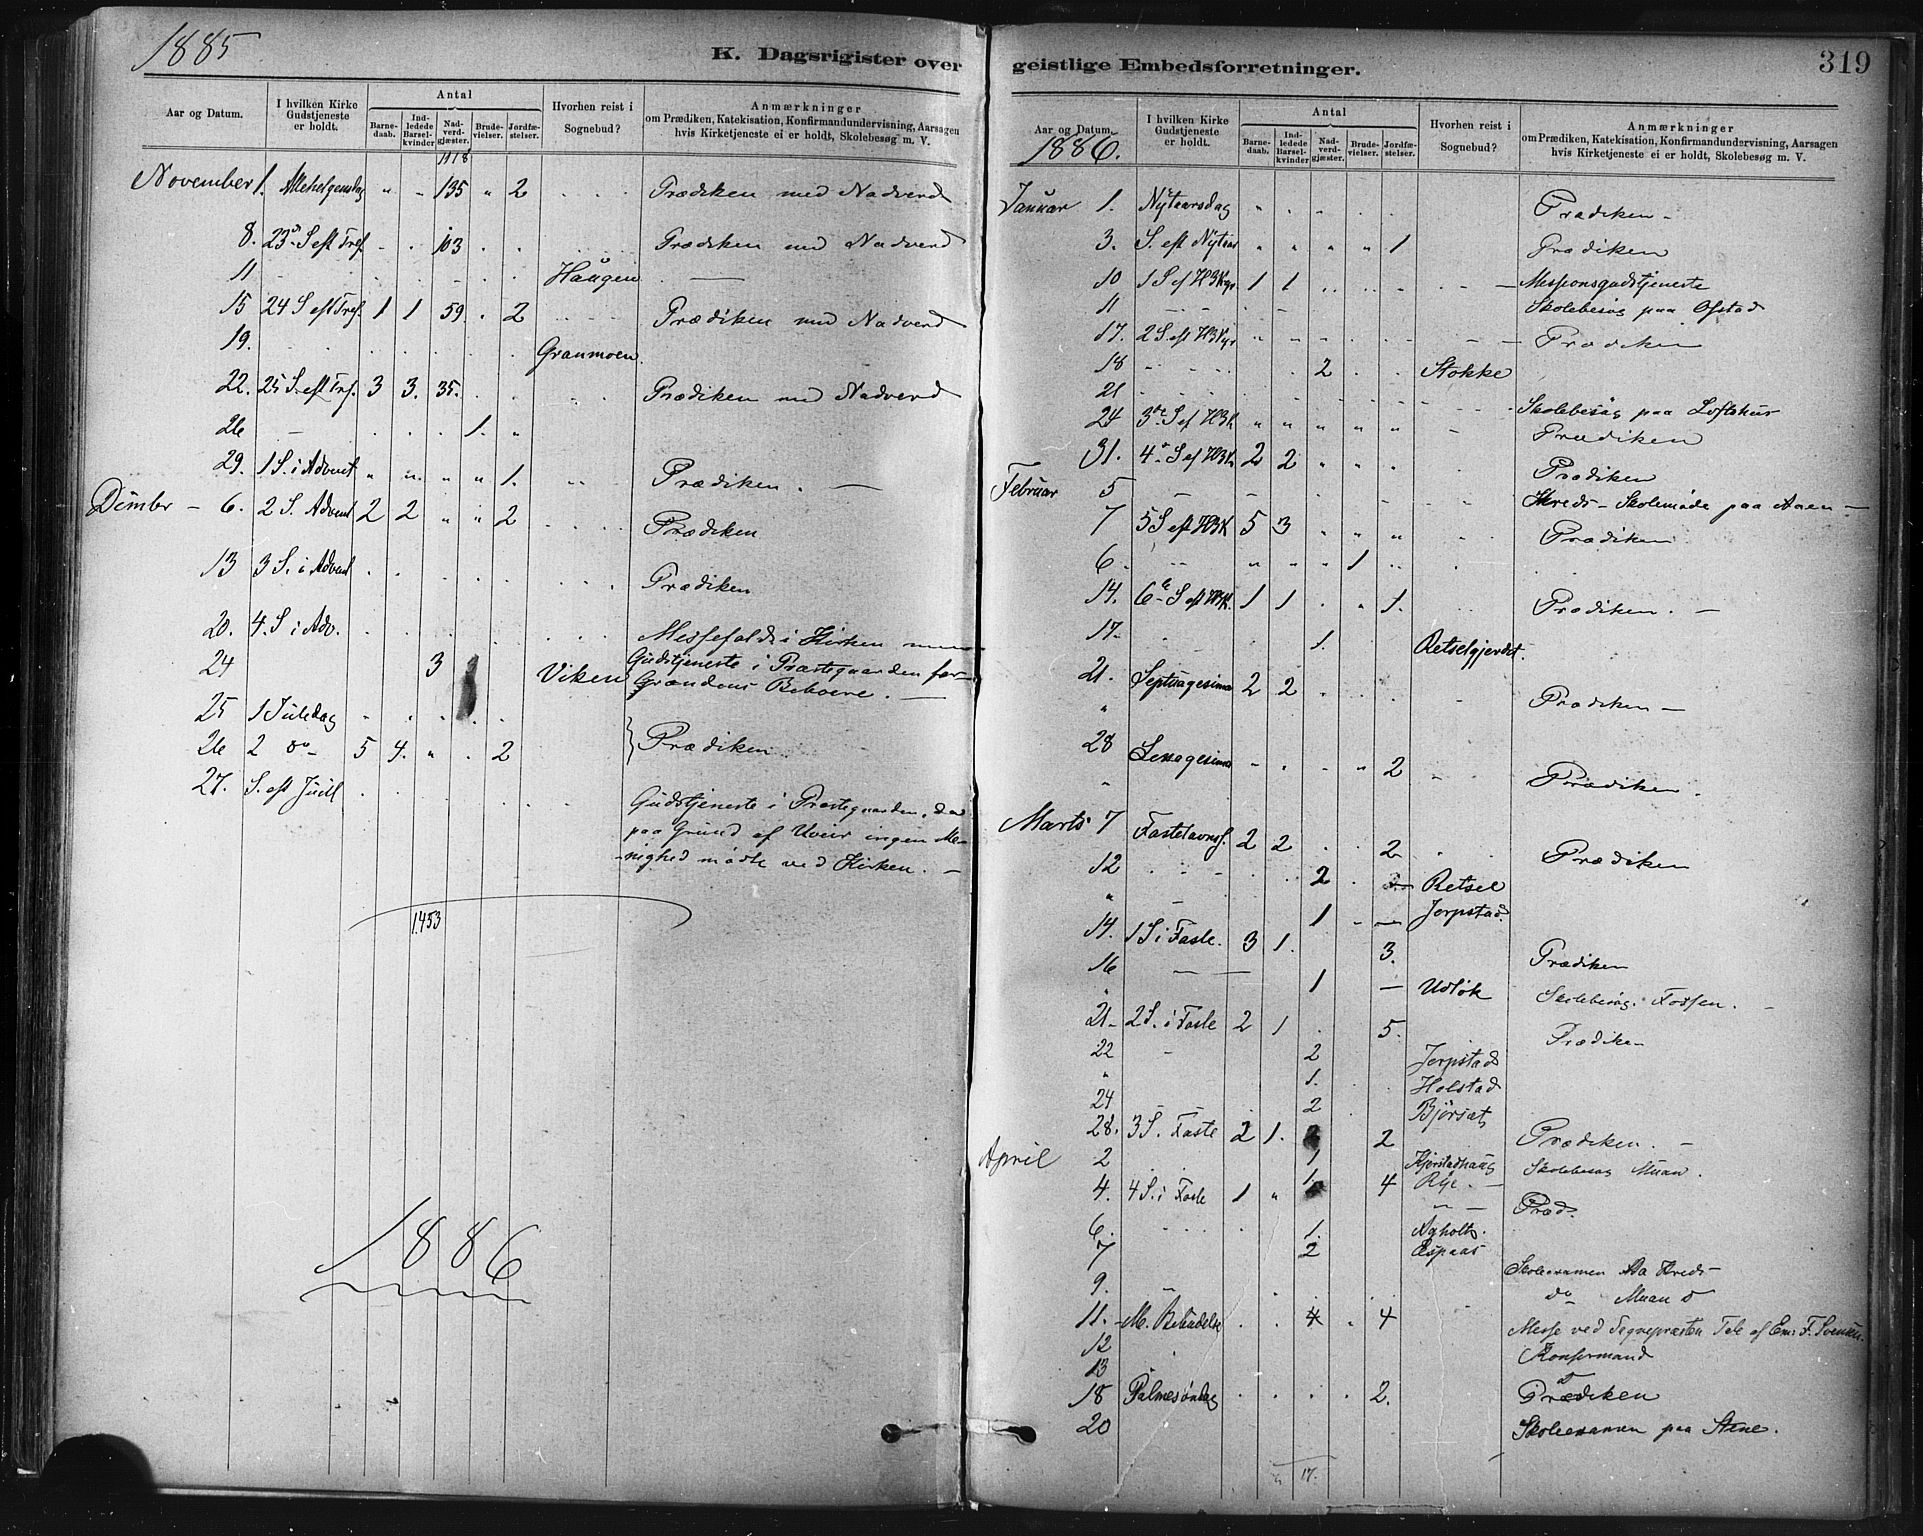 1885
K. Dagsrigister over
Aar og Datum. | I hvilken Kirke Gudstjeneste er holdt. | Antal | Barnedaab. | Indledede Barselkvinder | Nadverdgjæster. | Brudevielser. | Jordfæstelser. | Hvorhen reist i Sognebud? | Anmærkninger om Prædiken, Katekisation, Konfirmandundervisning, Aarsagen hvis Kirketjeneste ei er holdt, Skolebesøg m. V.
1118
November 1. Allehelgensdag " " 135 " 2 Prædiken med Nadverd
8. 23de S eft Tref. 103 Prædiken med Nadverd
11 Haugen
15 24 S eft Tref. 1 1 59. 2 Prædiken med Nadverd
19. Granmoen.
22. 25 S. eft Tref. 3 3. 35. Prædiken med Nadverd
26 1. "
29. 1 S. i Advent " " " " 1. Prædiken. —
Dcmber – 6. 2 S. Advent 2 2 " " 2 Prædiken
13 3 S. i Advent Prædiken
20. 4. S i Adv. Messefald i Kirken men
24 3 Viken Gudstjeneste i Præstegaarden for
Grændens Beboere. —
25 1 Juledag
26 2 do 5 4. " 2 Prædiken
27. S. eft Juul Gudstjeneste i Præstegaarden, da
paa Grund af Uveir ingen Me-
-nighed mødte ved Kirken. –
1453
1886
319
geistlige Embedsforretninger.
Aar og Datum. | I hvilken Kirke Gudstjeneste er holdt. | Antal | Barnedaab. | Indledede Barselkvinder | Nadverdgjæster. | Brudevielser. | Jordfæstelser. | Hvorhen reist i Sognebud? | Anmærkninger om Prædiken, Katekisation, Konfirmandundervisning, Aarsagen hvis Kirketjeneste ei er holdt, Skolebesøg m. V.
1886.
Januar 1. Nytaarsdag Prædiken –
3. S. eft Nytaar " " " " 1 Prædiken
10 1 S ef H3K 1 1 Missionsgudstjeneste
11 Skolebesøg paa Ofstad
17. 2 S. eft H3K Prædiken
18 2 Stokke
21 Skolebesøg paa Loftshus
24 3de S ef H3K " " " " " Prædiken
31. 4de S ef H3K 2 2 Prædiken
Februar 5 Kreds–Skolemøde paa Aaen –
7 5 S eft H3K 5 3 Prædiken
6 1
14. 6te S eft H3K. 1 1 1. Prædiken. –
17. 1. Retselgjerdet.
21. Septuagesima 2 2 Prædiken –
28 Sexagesima 2 Prædiken.
Marts 7 Fastelavns. 2 2 2 Prædiken
12 2 Retsel
" 1 Jerpstad
14. 1 S i Faste. 3 1. 3. Prædiken
16
" 1 – Skolebesøg.
21– 2 S. i Faste 2 1 5. Prædiken
22 2 Jerpstad
" 1. Holstad
24 2 Bjørsæt
28. 3 S. Faste 2 1. 2 Prædiken. –
April 2 1 Kjerstadhaug Skolebesøg Muan.
1. Rye. –
4. 4 S. i Faste 1 " 4 Præd.
6. 1.
7 2 Espaas
9. Skoleexamen Aa Kreds
do Muan
11. M. Bebudelse 4 4 Messe ved Sognepræsten
12 Konfirmand
13
18 Palmesøndag 2. Prædiken
20 Skoleexamen paa Stene.
17.